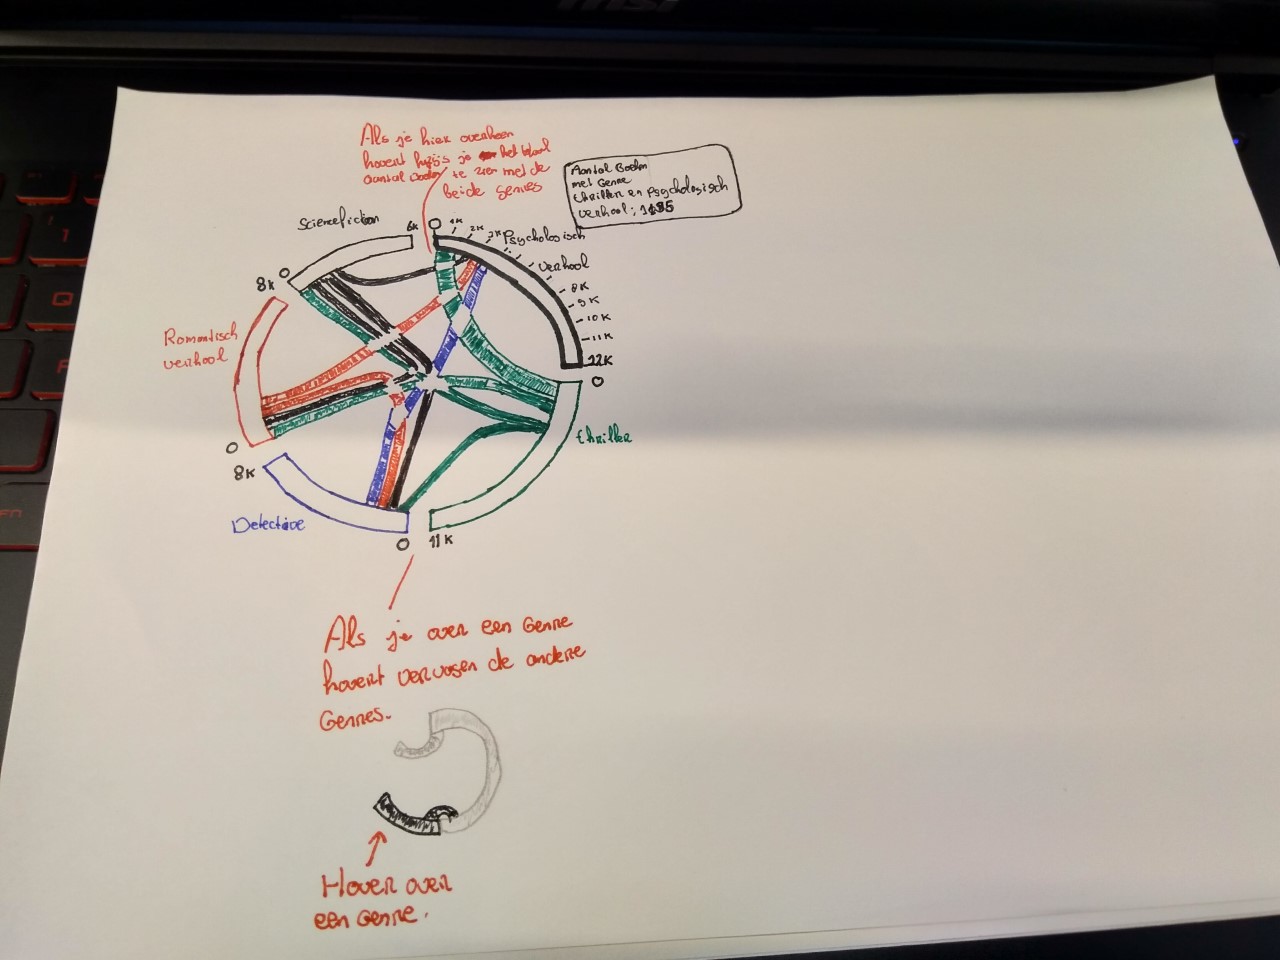 msi
Als je hier overheen
hovert krijg je het totaal
aantal boeken te zien met de
beide genres
Aantal Boeken
met Genre
thriller en Psychologisch
verhaal: 1185
Sciencefiction
6K
0
1K
2K
3K
Psychologisch
verhaal
8K
9K
10K
11K
12K
0
thriller
11K
0
Detective
8K
0
Romantisch
verhaal
8K
0
Als je over een Genre
hovert vervagen de andere
Genres.
Hover over
een Genre.